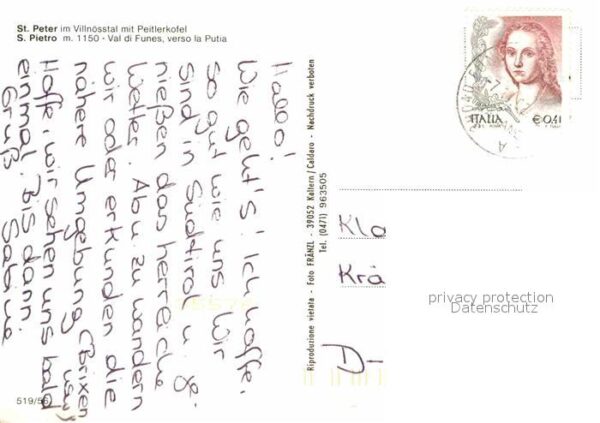 St. Peter im Villnösstal mit Peitlerkofel
S. Pietro m. 1150 - Val di Funes, verso la Putia
Hallo!
Wie geht's! Ich hoffe,
so gut wie uns. Wir
sind in Südtirol u. ge-
nießen das herrliche
Wetter. Ab u. zu wandern
wir oder erkunden die
nähere Umgebung (Brixen
usw)
Hoffe, wir sehen uns bald
einmal. Bis dann.
Gruß Sabine
519/56
Riproduzione vietata - Foto FRÄNZL - 39052 Kaltern / Caldaro - Nachdruck verboten
Tel. (0471) 963505
ITALIA €0,41
Kla
Krä
D-
privacy protection
Datenschutz